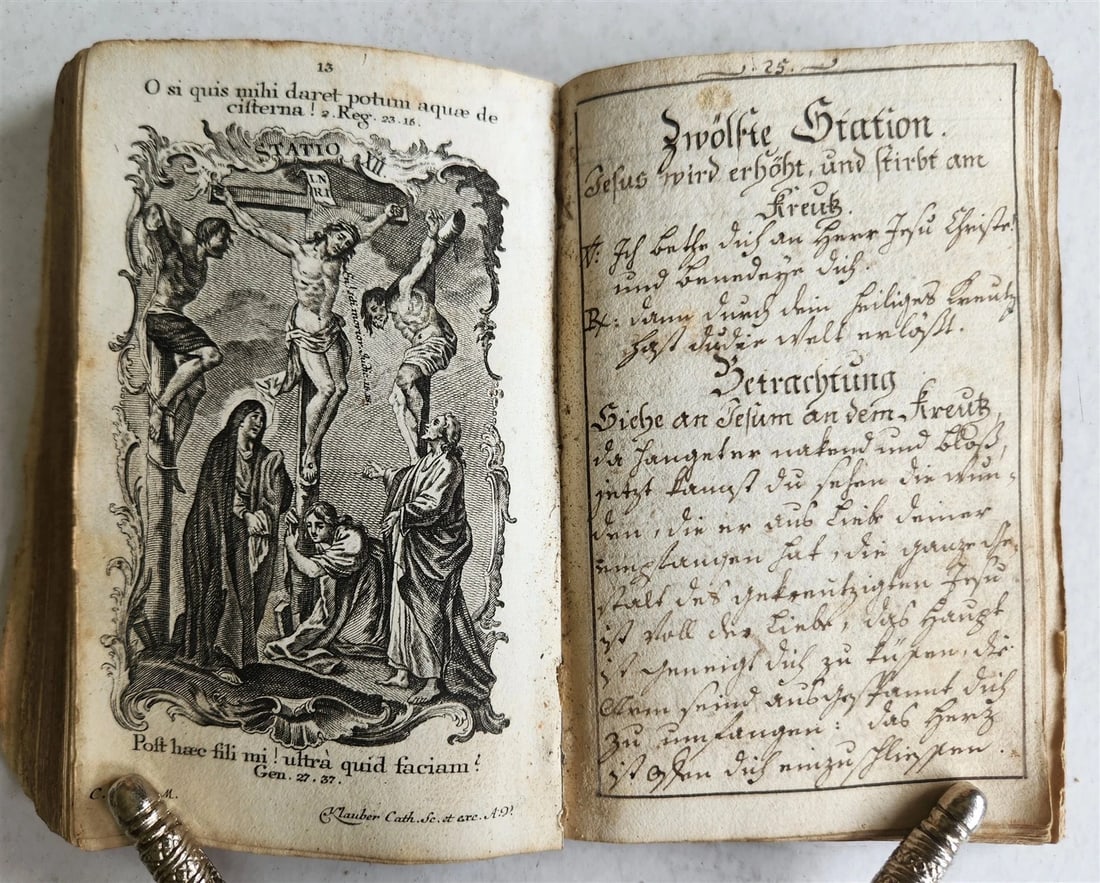 13
O si quis mihi daret potum aquæ de
cisterna! 2. Reg. 23. 16.
STATIO XII
IN
RI
Post hæc fili mi! ultrà quid faciam?
Gen. 27. 37.
C. M.
Klauber Cath. Sc. et exc. A.V.
. 25.
Zwölfte Station.
Jesus wird erhöht, und stirbt am
Kreutz.
V: Ich bethe dich an Herr Jesu Christe!
und benedeye dich.
R: dann durch dein heiliges Kreutz
hast du die Welt erlößt.
Betrachtung
Siehe an Jesum an dem Kreutz,
da hanget er nakend und bloß,
jetzt kanst du sehen die wun-
den, die er aus Liebe deiner
empfangen hat, die ganze Ge-
stalt des gekreutzigten Jesu
ist voll der Liebe, das Haupt
ist geneigt dich zu küßen, die
Armen seind ausgespannt dich
zu umfangen: das Hertz
ist offen dich einzuschliessen.